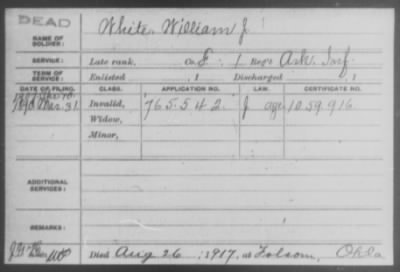 DEAD
NAME OF SOLDIER: White, William J
SERVICE: Late rank, Co. E. 1 Reg't Ark. Inf
TERM OF SERVICE: Enlisted , 1 Discharged , 1
DATE OF FILING. CLASS. APPLICATION NO. LAW. CERTIFICATE NO.
Mar. 31 Invalid, 765.542. J age 1059.916.
Widow,
Minor,
ADDITIONAL SERVICES:
REMARKS:
Died Aug 26, 1917, at Folsom, Okla